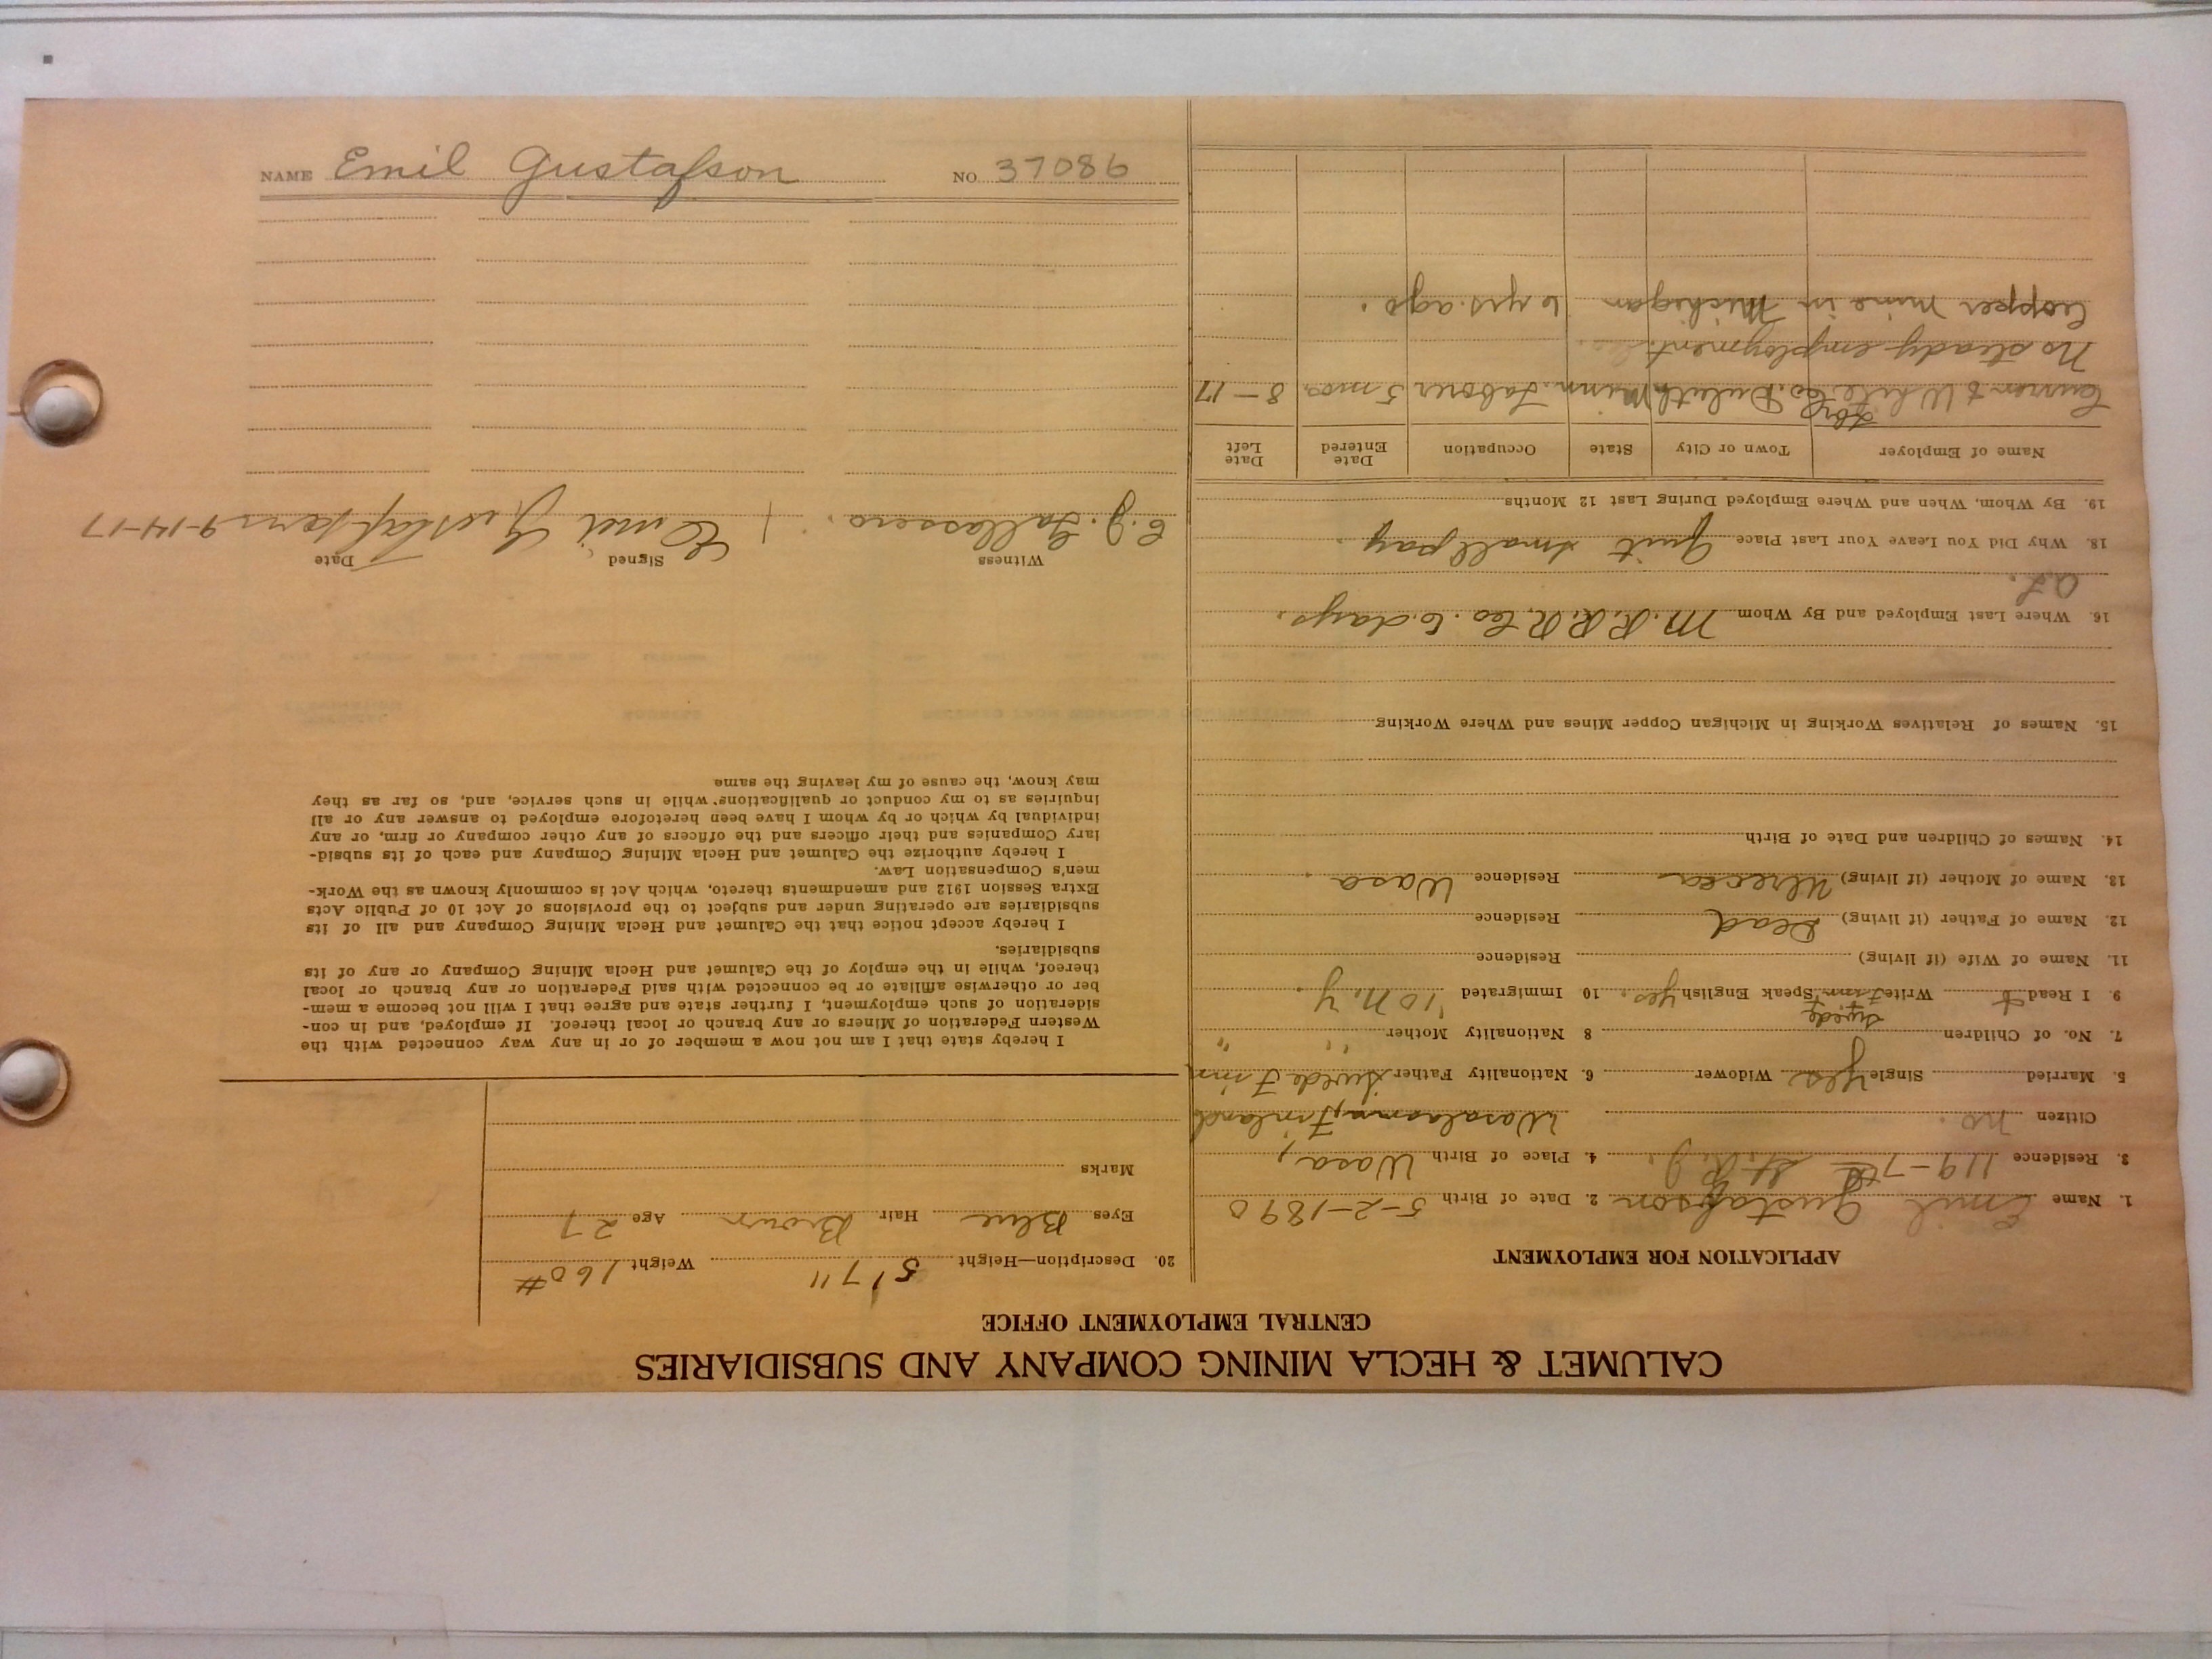 CALUMET & HECLA MINING COMPANY AND SUBSIDIARIES
CENTRAL EMPLOYMENT OFFICE
APPLICATION FOR EMPLOYMENT
1. Name Emil Gustafson 2. Date of Birth 5-2-1890
3. Residence 119-7th St. R.J. 4. Place of Birth Wasa,
Citizen no. Wasalaamn, Finland
5. Married Single Yes Widower 6. Nationality Father Swede Finn
7. No. of Children 8 Nationality Mother " "
Swede &
9. I Read & Write Finn Speak English Yes. 10 Immigrated '10 N.Y.
11. Name of Wife (if living) Residence
12. Name of Father (if living) Dead Residence
13. Name of Mother (if living) Ulrecka Residence Wasa.
14. Names of Children and Date of Birth
15. Names of Relatives Working in Michigan Copper Mines and Where Working
16. Where Last Employed and By Whom M.R.R.R. Co. 6 days.
18. Why Did You Leave Your Last Place Quit small pay.
19. By Whom, When and Where Employed During Last 12 Months
Name of Employer Town or City State Occupation Date Entered Date Left
& White Co. Duluth Minn. Laborer 5 mos. 8-17
No steady employment.
Copper mine in Michigan 6 yrs. ago.
20. Description—Height 5'7" Weight 160#
Eyes Blue Hair Brown Age 27
Marks
I hereby state that I am not now a member of or in any way connected with the
Western Federation of Miners or any branch or local thereof. If employed, and in con-
sideration of such employment, I further state and agree that I will not become a mem-
ber or otherwise affiliate or be connected with said Federation or any branch or local
thereof, while in the employ of the Calumet and Hecla Mining Company or any of its
subsidiaries.
I hereby accept notice that the Calumet and Hecla Mining Company and all of its
subsidiaries are operating under and subject to the provisions of Act 10 of Public Acts
Extra Session 1912 and amendments thereto, which Act is commonly known as the Work-
men's Compensation Law.
I hereby authorize the Calumet and Hecla Mining Company and each of its subsid-
iary Companies and their officers and the officers of any other company or firm, or any
individual by which or by whom I have been heretofore employed to answer any or all
inquiries as to my conduct or qualifications while in such service, and, so far as they
may know, the cause of my leaving the same
Witness Signed Date
Emil 9-14-17
NAME Emil Gustafson NO. 37086